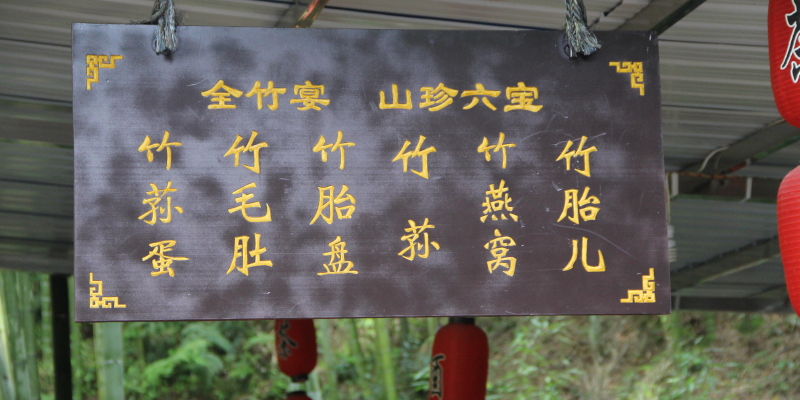 全竹宴 山珍六宝
竹荪蛋
竹毛肚
竹胎盘
竹荪
竹燕窝
竹胎儿